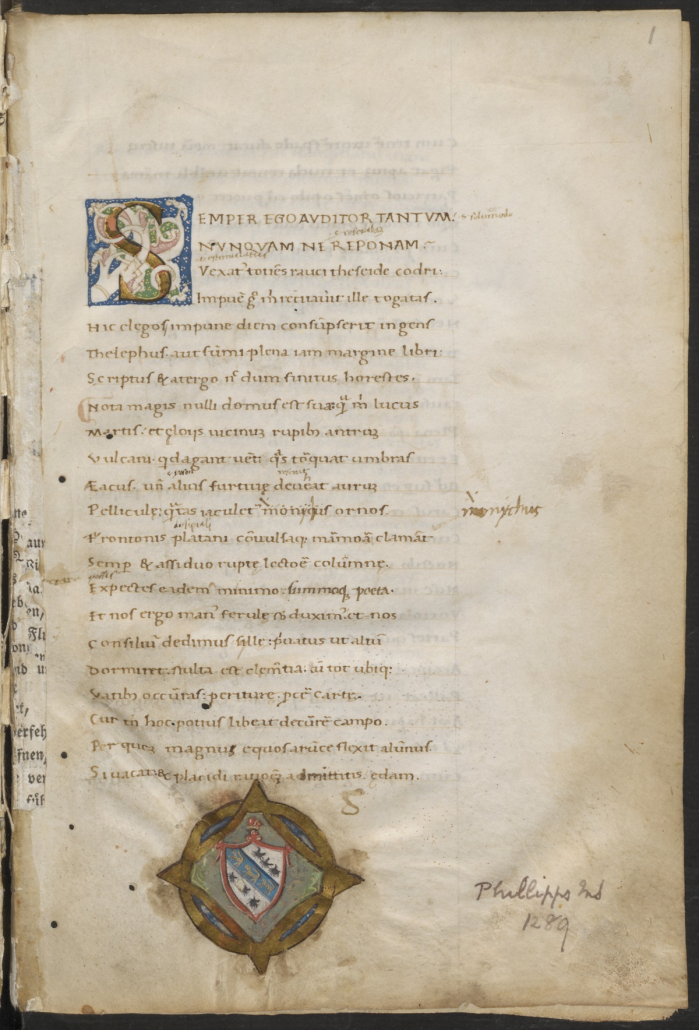 1
SEMPER EGO AVDITOR TANTVM:
NVNQVAM NE REPONAM
Vexat' totiēs rauci theseide codri:
Impuē g̊ m̄ recitauit ille togatas.
Hic elegos impune diem consūpserit ingens
Thelephus aut sūmi plena iam margine libri:
Scriptus & atergo nc̄ dum finitus horestes.
Nota magis nulli domus est sua q̄ m̄ lucus
Martis. et ęolijs uicinuȝ rupibȝ antruȝ
Vulcani. qd agant uēti q̄s torq̄at umbras
Æacus. un̄ alius furtiuę deuehat auruȝ
Pelliculę: q̄tas iaculet' monichus ornos
monychus
Frontonis platani cōuulsaq; marmora clamāt
Semp̱ & assiduo ruptę lectore colūmnę.
Expectes eadem minimo summoq; poeta.
Et nos ergo manū ferulę sbduximꝰ. et nos
Consiliū dedimus sille: p̱uatus ut altū
Dormiret. stulta est clem̄tia. cū tot ubiq;
Vatibȝ occurras: periturę p̱cē cartę.
Cur tn̄ hoc potius libeat decurrē campo.
Per que magnus equos auruncę flexit alūnus.
Si uacat & placidi rationē admittitis ędam.
S
Phillipps Ms
1289